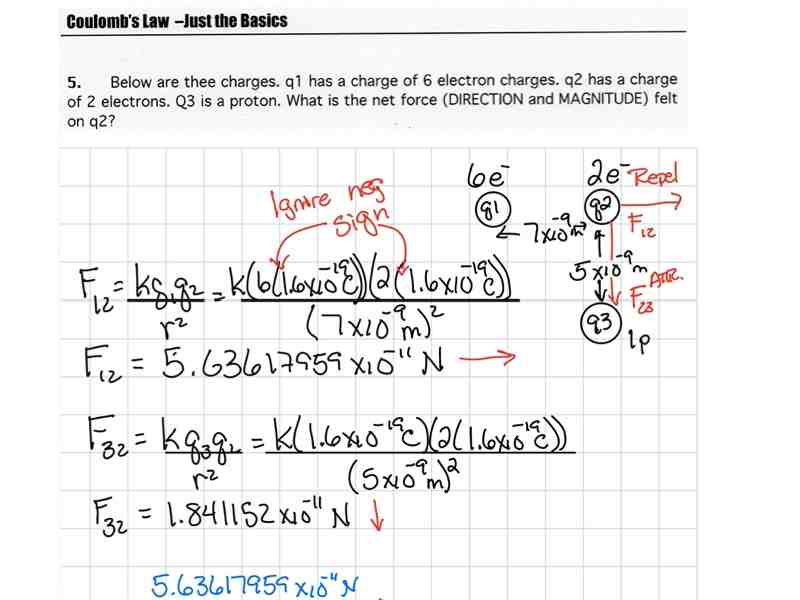 Coulomb's Law –Just the Basics
5. Below are thee charges. q1 has a charge of 6 electron charges. q2 has a charge
of 2 electrons. Q3 is a proton. What is the net force (DIRECTION and MAGNITUDE) felt
on q2?
6e⁻ 2e⁻ Repel
Ignore neg
sign
q1 q2
← 7x10⁻⁹m → F₁₂
5x10⁻⁹m
Attr.
F₂₃
q3 1p
F₁₂ = kq₁q₂/r² = k(6(1.6x10⁻¹⁹C))(2(1.6x10⁻¹⁹C))/(7x10⁻⁹m)²
F₁₂ = 5.63617959x10⁻¹¹ N →
F₃₂ = kq₃q₂/r² = k(1.6x10⁻¹⁹C)(2(1.6x10⁻¹⁹C))/(5x10⁻⁹m)²
F₃₂ = 1.841152x10⁻¹¹ N ↓
5.63617959x10⁻¹¹N